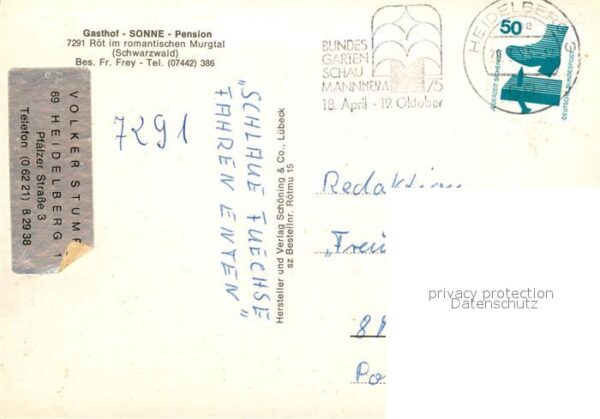 Gasthof - SONNE - Pension
7291 Röt im romantischen Murgtal
(Schwarzwald)
Bes. Fr. Frey - Tel. (07442) 386
VOLKER STUMP
69 HEIDELBERG 1
Pfälzer Straße 3
Telefon (0 62 21) 8 29 38
7291
"SCHLAUE FUECHSE
FAHREN ENTEN"
Hersteller und Verlag Schöning & Co., Lübeck
sz Bestellnr. Rötmu 15
BUNDES
GARTEN
SCHAU
MANNHEIM 75
18. April - 19. Oktober
HEIDELBERG
9
50
JEDERZEIT SICHERHEIT
DEUTSCHE BUNDESPOST
Redaktion
"Freu
8
Po
privacy protection
Datenschutz